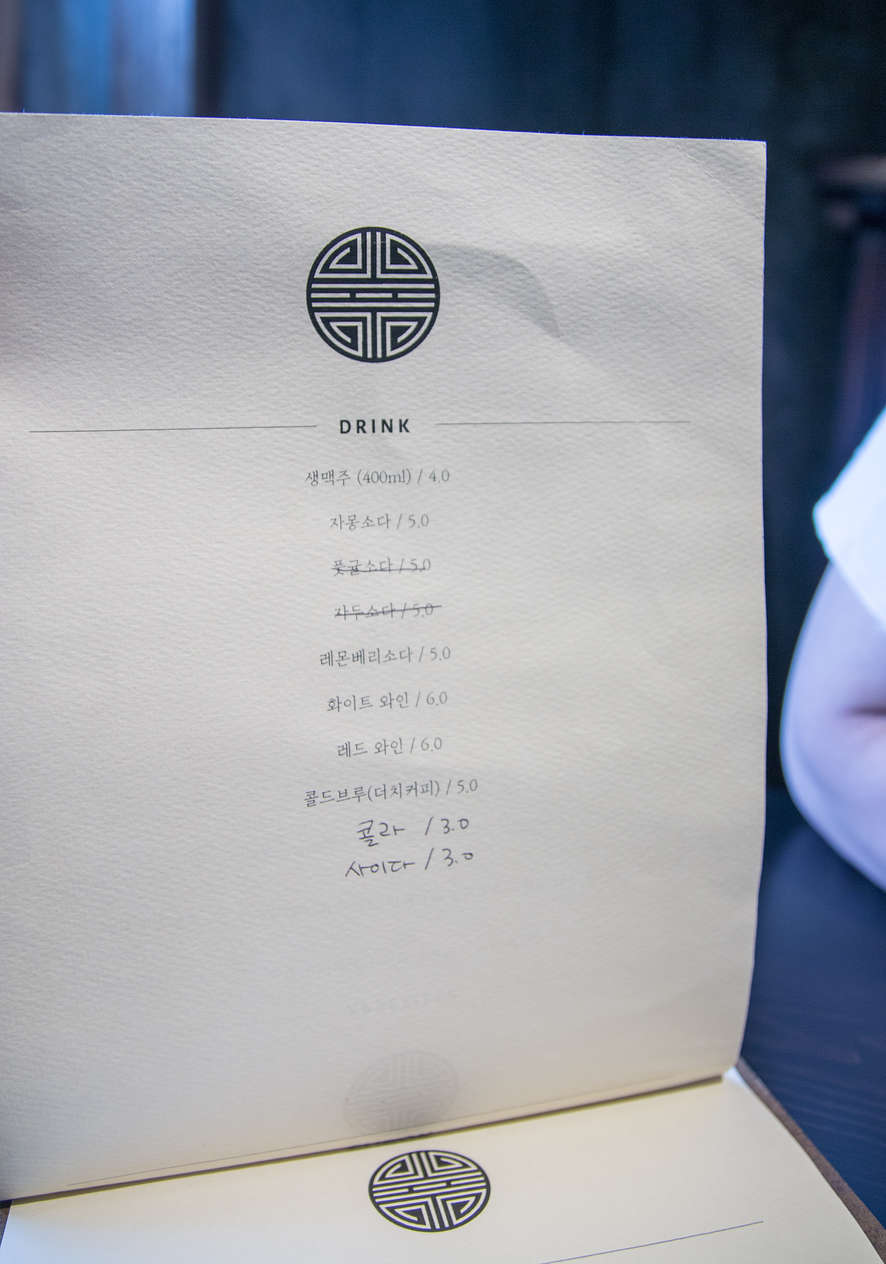 DRINK
생맥주 (400ml) / 4.0
자몽소다 / 5.0
풋귤소다 / 5.0
자두소다 / 5.0
레몬베리소다 / 5.0
화이트 와인 / 6.0
레드 와인 / 6.0
콜드브루(더치커피) / 5.0
콜라 / 3.0
사이다 / 3.0